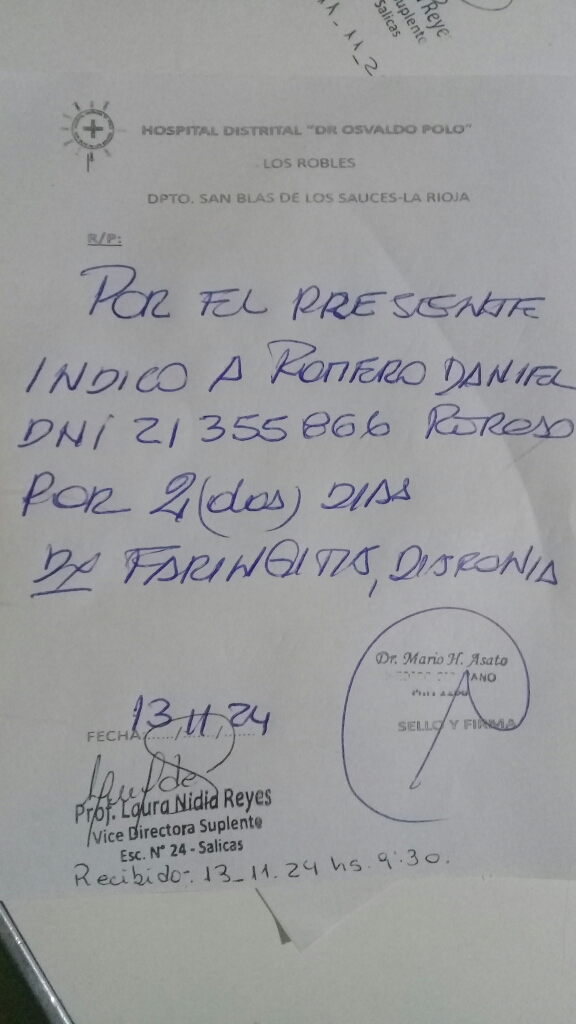 Reye
Suplente
Salicas
11-11-2
HOSPITAL DISTRITAL "DR OSVALDO POLO"
LOS ROBLES
DPTO. SAN BLAS DE LOS SAUCES-LA RIOJA
R/P:
POR EL PRESENTE
INDICO A ROMERO DANIEL
DNI 21 355 866 REPOSO
POR 2 (dos) DIAS
DX FARINGITIS, DISFONIA
Dr. Mario H. Asato
ANO
SELLO Y FIRMA
FECHA: 13/11/24
Prof. Laura Nidia Reyes
Vice Directora Suplente
Esc. N° 24 - Salicas
Recibido-. 13_11. 24 hs. 9:30.